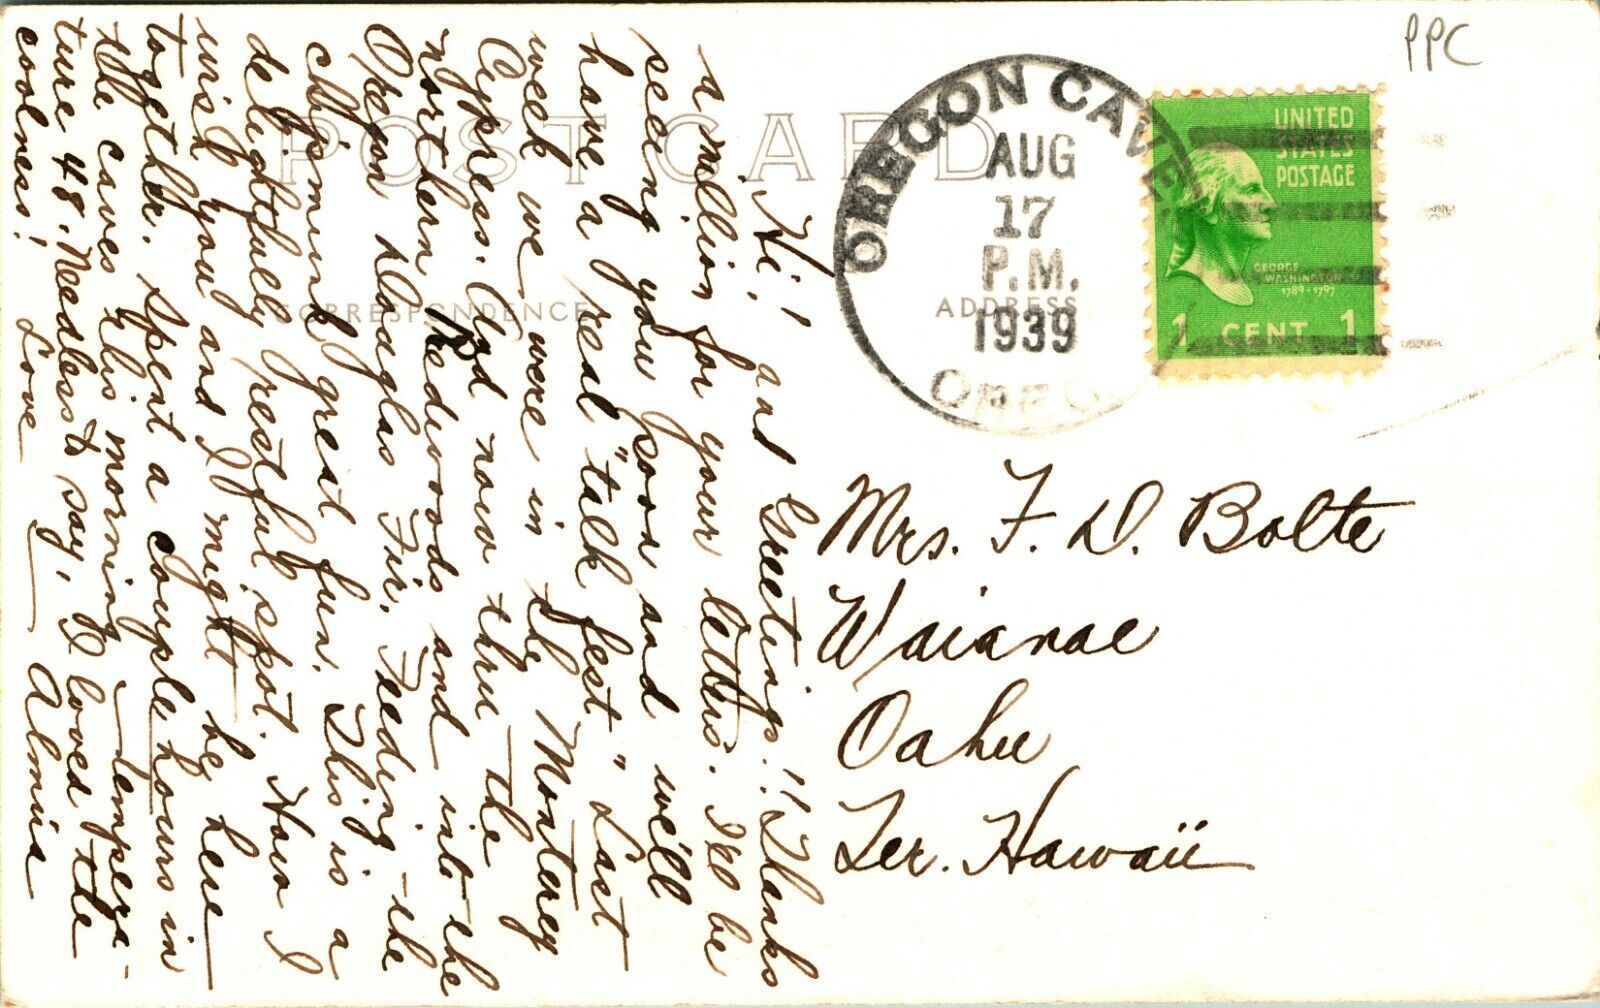 PPC
POST CARD
CORRESPONDENCE
ADDRESS
OREGON CAVES
AUG
17
P.M.
1939
OREG.
UNITED
STATES
POSTAGE
GEORGE
WASHINGTON
1789-1797
1 CENT 1
Hi! and Greetings!! Thanks
a million for your letters. I'll be
seeing you soon and we'll
have a real "talk fest". Last
week we were in the Monterey
Cypress. And now thru the
northern Redwoods and into the
Oregon Douglas Fir. Feeding the
chipmunk great fun. This is a
delightfully restful spot. How I
wish you and I might be here
together. Spent a couple hours in
the caves this morning – tempera-
ture 48. Needless to say, I loved the
coolness!
Love
Almira
Mrs. F. D. Bolte
Waianae
Oahu
Ter. Hawaii